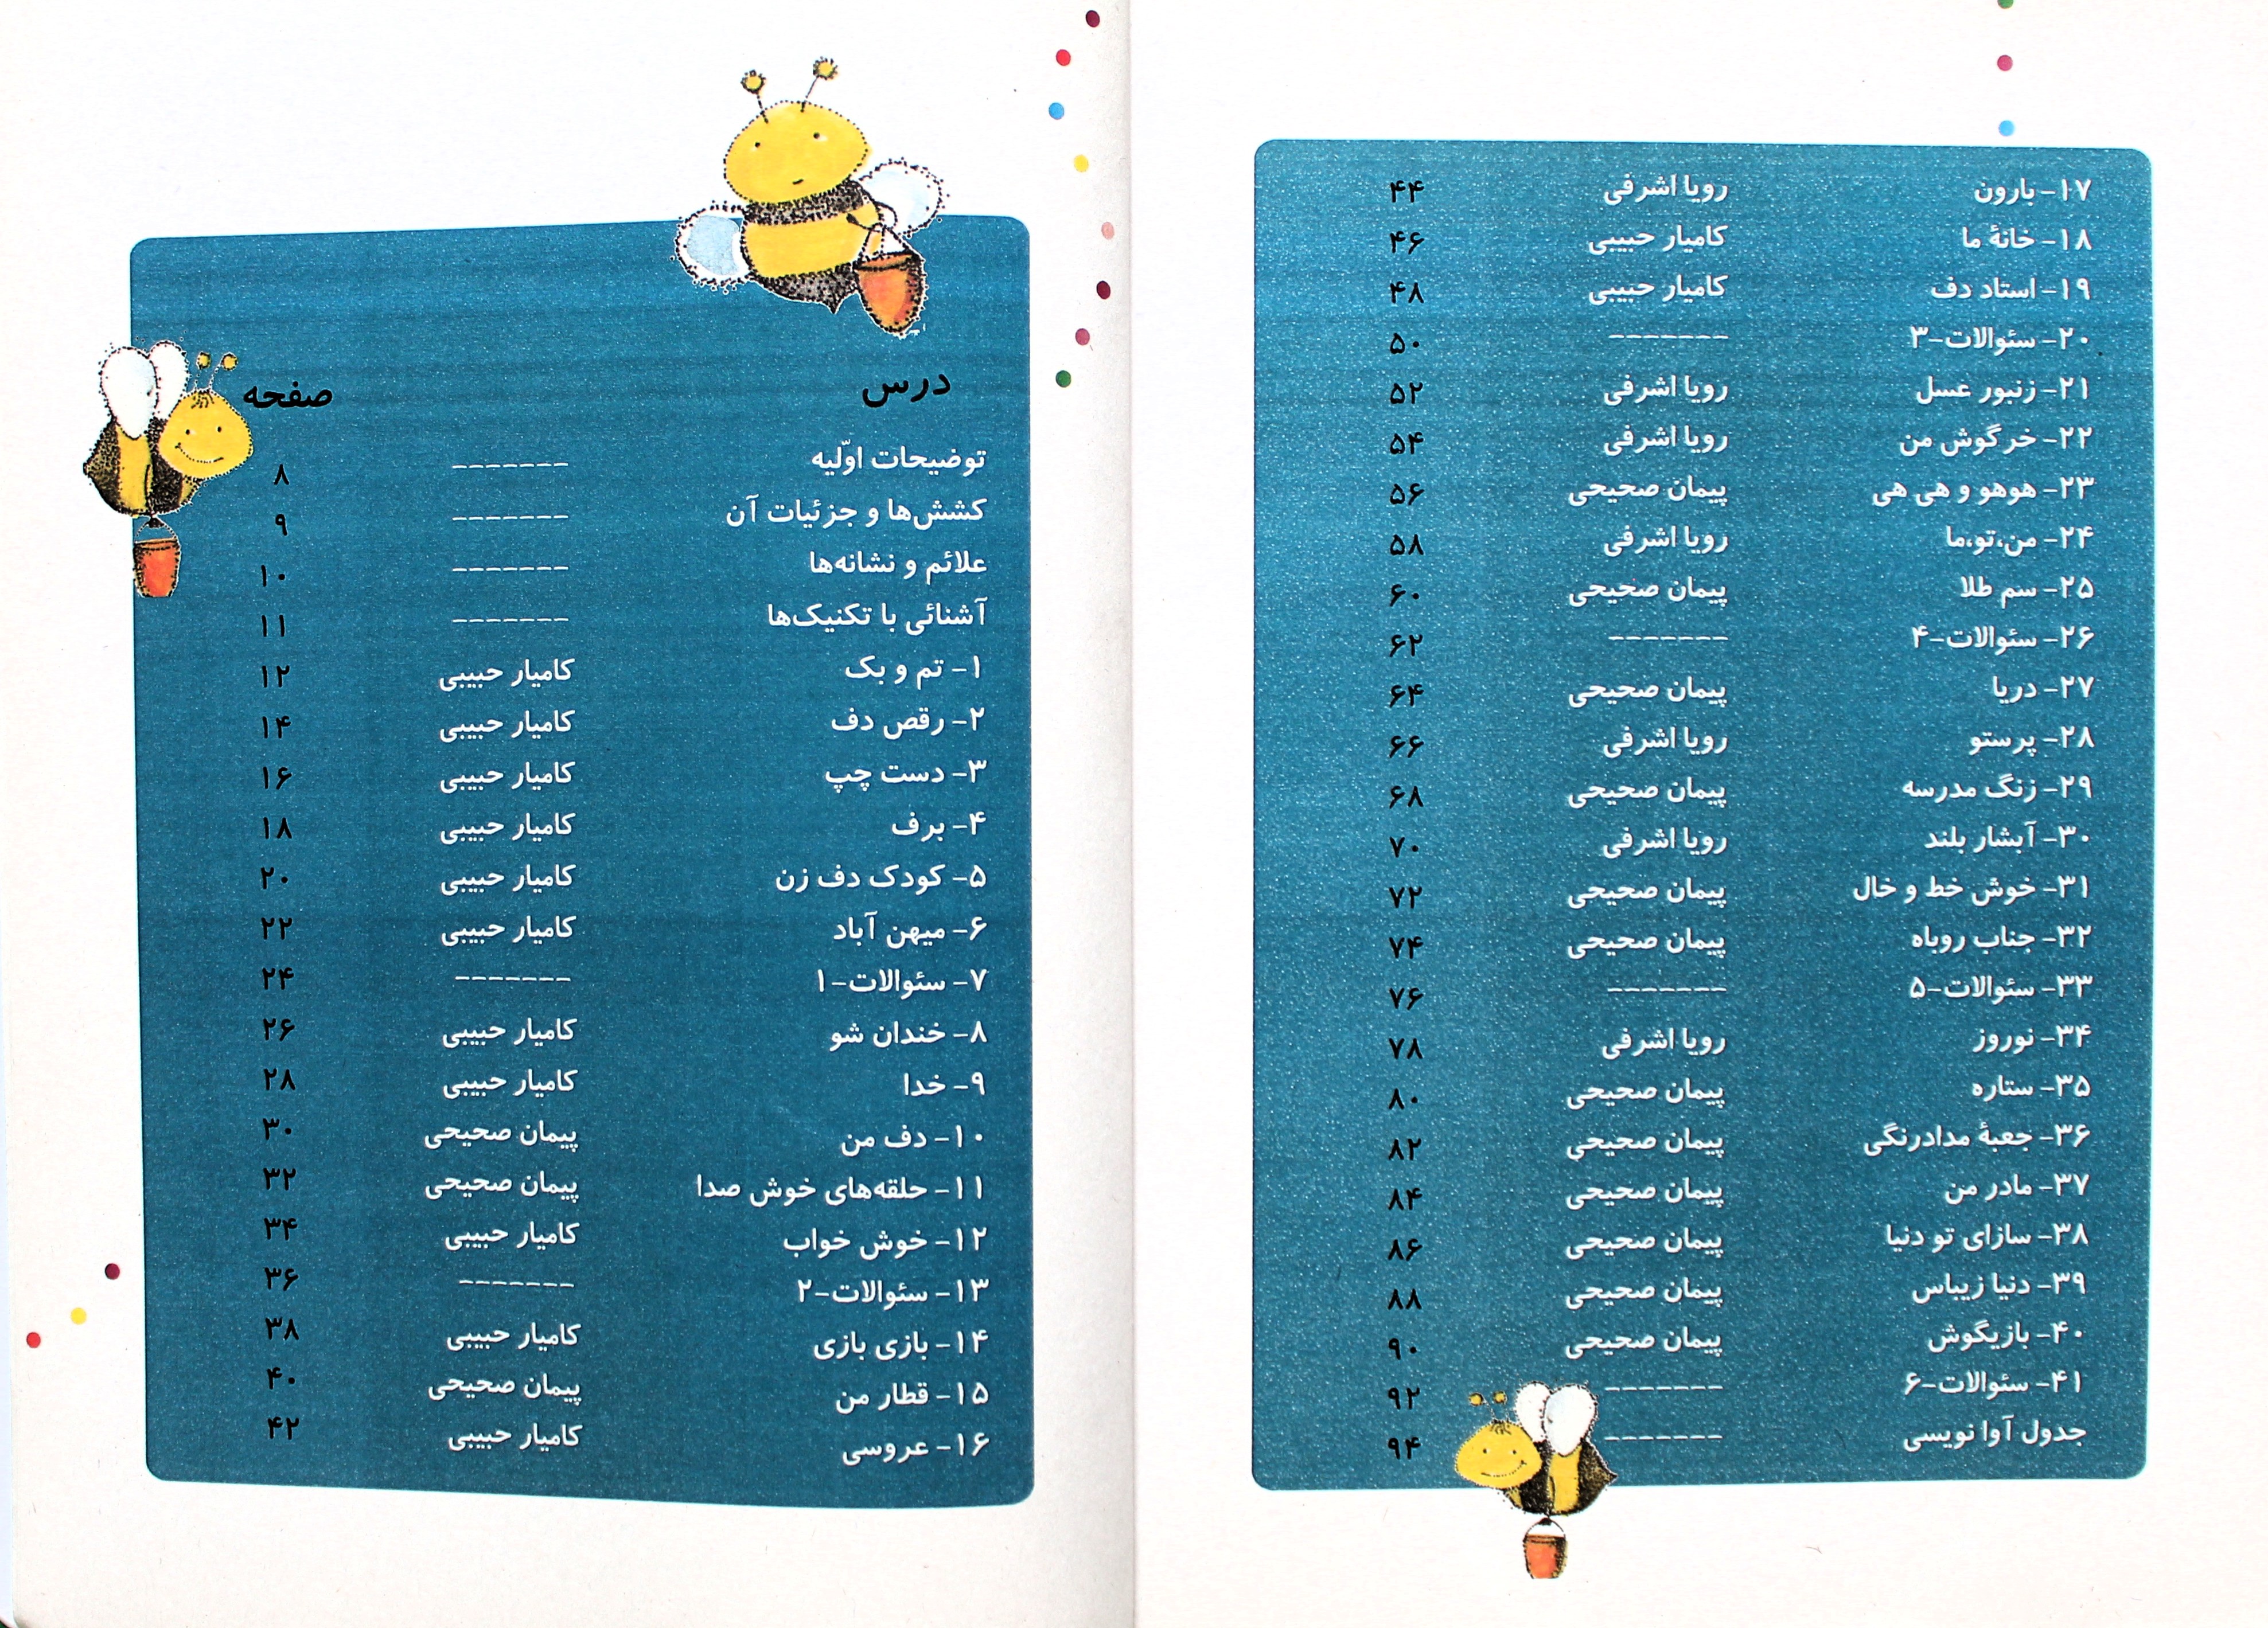 درس صفحه
توضیحات اوّلیه ------- ۸
کشش‌ها و جزئیات آن ------- ۹
علائم و نشانه‌ها ------- ۱۰
آشنائی با تکنیک‌ها ------- ۱۱
۱- تم و بک کامیار حبیبی ۱۲
۲- رقص دف کامیار حبیبی ۱۴
۳- دست چپ کامیار حبیبی ۱۶
۴- برف کامیار حبیبی ۱۸
۵- کودک دف زن کامیار حبیبی ۲۰
۶- میهن آباد کامیار حبیبی ۲۲
۷- سئوالات-۱ ------- ۲۴
۸- خندان شو کامیار حبیبی ۲۶
۹- خدا کامیار حبیبی ۲۸
۱۰- دف من پیمان صحیحی ۳۰
۱۱- حلقه‌های خوش صدا پیمان صحیحی ۳۲
۱۲- خوش خواب کامیار حبیبی ۳۴
۱۳- سئوالات-۲ ------- ۳۶
۱۴- بازی بازی کامیار حبیبی ۳۸
۱۵- قطار من پیمان صحیحی ۴۰
۱۶- عروسی کامیار حبیبی ۴۲
۱۷- بارون رویا اشرفی ۴۴
۱۸- خانهٔ ما کامیار حبیبی ۴۶
۱۹- استاد دف کامیار حبیبی ۴۸
۲۰- سئوالات-۳ ------- ۵۰
۲۱- زنبور عسل رویا اشرفی ۵۲
۲۲- خرگوش من رویا اشرفی ۵۴
۲۳- هوهو و هی هی پیمان صحیحی ۵۶
۲۴- من،تو،ما رویا اشرفی ۵۸
۲۵- سم طلا پیمان صحیحی ۶۰
۲۶- سئوالات-۴ ------- ۶۲
۲۷- دریا پیمان صحیحی ۶۴
۲۸- پرستو رویا اشرفی ۶۶
۲۹- زنگ مدرسه پیمان صحیحی ۶۸
۳۰- آبشار بلند رویا اشرفی ۷۰
۳۱- خوش خط و خال پیمان صحیحی ۷۲
۳۲- جناب روباه پیمان صحیحی ۷۴
۳۳- سئوالات-۵ ------- ۷۶
۳۴- نوروز رویا اشرفی ۷۸
۳۵- ستاره پیمان صحیحی ۸۰
۳۶- جعبهٔ مدادرنگی پیمان صحیحی ۸۲
۳۷- مادر من پیمان صحیحی ۸۴
۳۸- سازای تو دنیا پیمان صحیحی ۸۶
۳۹- دنیا زیباس پیمان صحیحی ۸۸
۴۰- بازیگوش پیمان صحیحی ۹۰
۴۱- سئوالات-۶ ------- ۹۲
جدول آوا نویسی ------- ۹۴